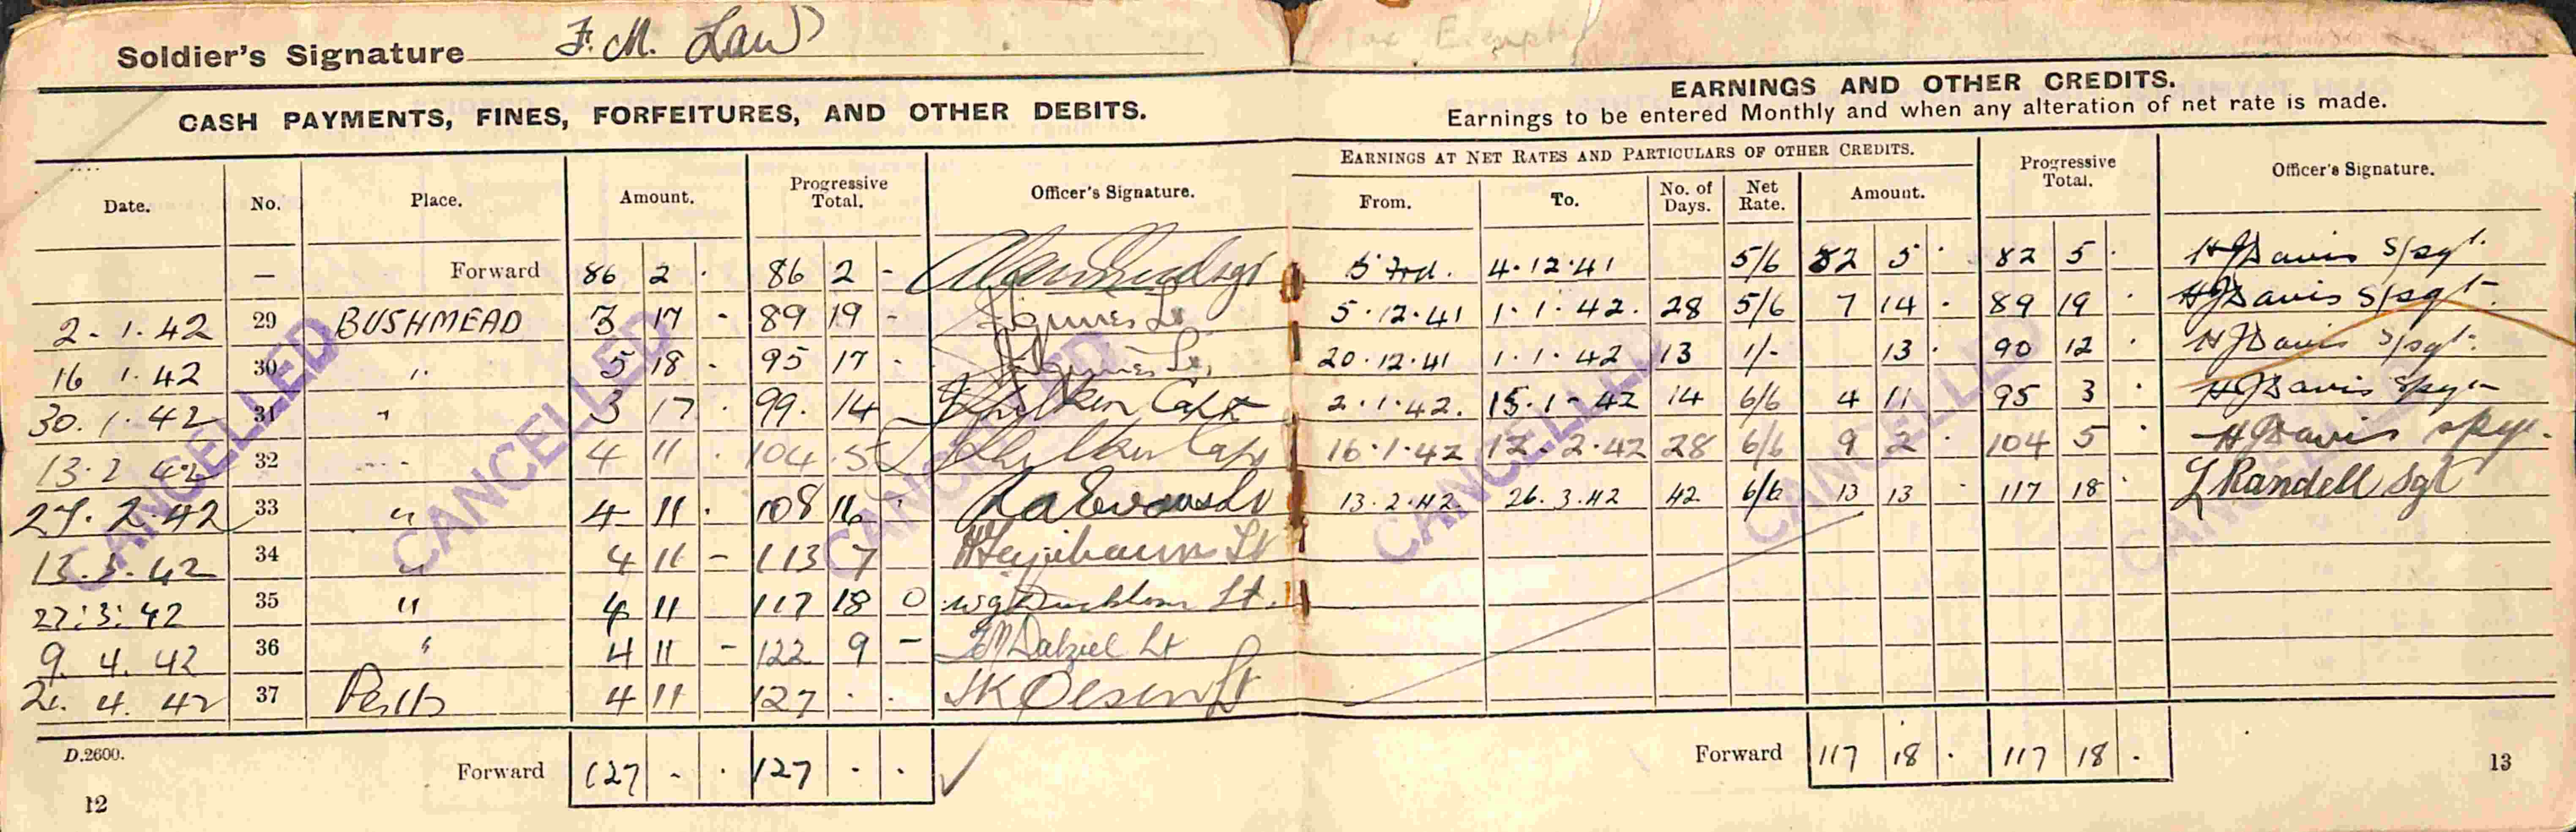 Soldier's Signature F. M. Law
CASH PAYMENTS, FINES, FORFEITURES, AND OTHER DEBITS.
Date. No. Place. Amount. Progressive Total. Officer's Signature.
— Forward 86 2 · 86 2 -
2-1.42 29 BUSHMEAD 3 17 - 89 19 -
16 1.42 30 " 5 18 - 95 17 -
30.1.42 31 " 3 17 · 99. 14 Capt
13.2 42 32 " 4 11 · 104 5 Capt
27.2.42 33 " 4 11 · 108 16 ·
13.3.42 34 " 4 11 - 113 7 Lt
27:3:42 35 " 4 11 117 18 0 Lt.
9. 4. 42 36 " 4 11 - 122 9 - Dalziel Lt
4. 42 37 Perth 4 11 127 · · J K Olsen Lt
Forward 127 - · 127 · ·
D.2600.
12
CANCELLED
CANCELLED
CANCELLED
EARNINGS AND OTHER CREDITS.
Earnings to be entered Monthly and when any alteration of net rate is made.
EARNINGS AT NET RATES AND PARTICULARS OF OTHER CREDITS. Progressive Total. Officer's Signature.
From. To. No. of Days. Net Rate. Amount.
4.12.41 5/6 82 5 · 82 5 · H J Davis S/sgt.
5.12.41 1.1.42. 28 5/6 7 14 · 89 19 · H J Davis S/sgt.
20.12.41 1.1.42 13 1/- 13 · 90 12 · H J Davis S/sgt.
2.1.42. 15.1-42 14 6/6 4 11 · 95 3 · H J Davis S/sgt
16.1.42 12.2.42 28 6/6 9 2 · 104 5 · H J Davis S/sgt.
13.2.42 26.3.42 42 6/6 13 13 - 117 18 · L Randell Sgt
Forward 117 18 · 117 18 ·
13
CANCELLED
CANCELLED
CANCELLED